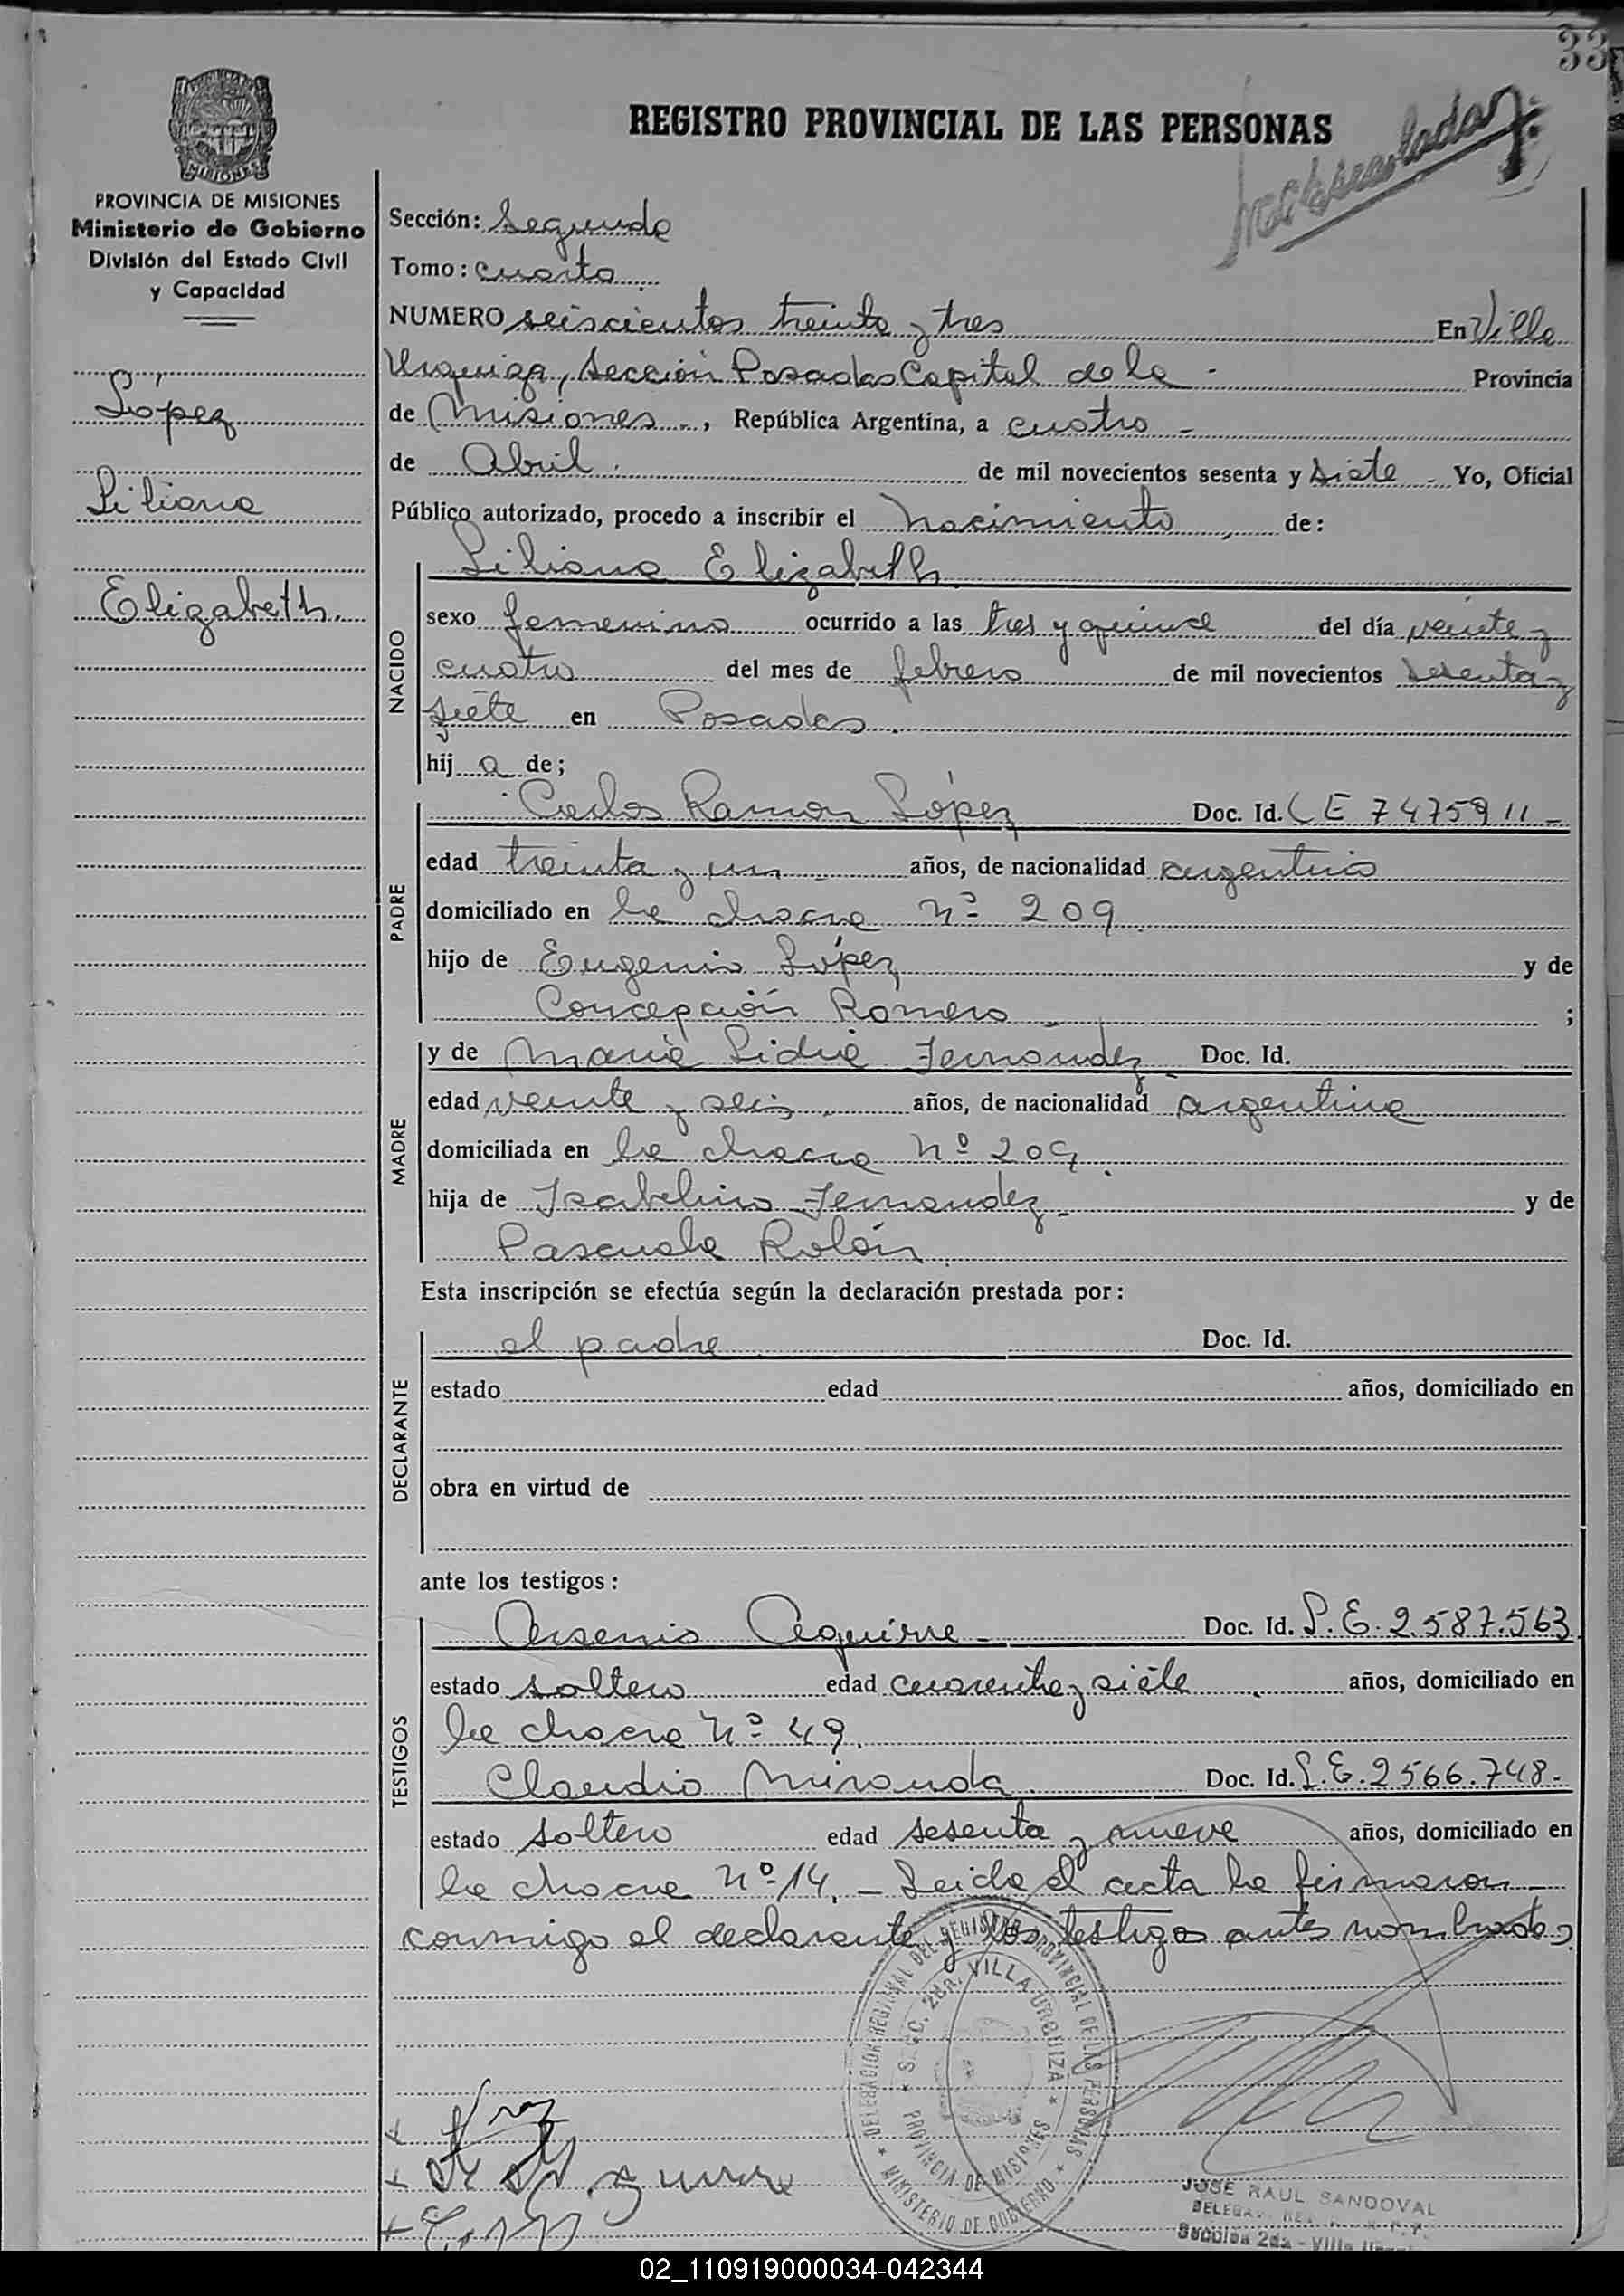 33
REGISTRO PROVINCIAL DE LAS PERSONAS
MISIONES
PROVINCIA DE MISIONES
Ministerio de Gobierno
División del Estado Civil
y Capacidad
López
Liliana
Elizabeth.
Sección: Segunda
Tomo: cuarto
NUMERO seiscientos treinta y tres En Villa
Urquiza, Sección Posadas Capital de la - Provincia
de Misiones -, República Argentina, a cuatro -
de Abril. de mil novecientos sesenta y siete - Yo, Oficial
Público autorizado, procedo a inscribir el nacimiento de:
NACIDO
Liliana Elizabeth
sexo femenino ocurrido a las tres y quince del día veinte y
cuatro del mes de febrero de mil novecientos sesenta y
siete en Posadas.
hij a de;
PADRE
Carlos Ramon López Doc. Id. CE 7475911 -
edad treinta y un años, de nacionalidad argentino
domiciliado en la chacra Nº 209
hijo de Eugenio López y de
Concepción Romero - ;
MADRE
y de Maria Lidia Fernandez Doc. Id.
edad veinte y seis años, de nacionalidad argentina
domiciliada en la chacra Nº 209.
hija de Isabelino Fernandez - y de
Pascuala Rolón
Esta inscripción se efectúa según la declaración prestada por:
DECLARANTE
el padre Doc. Id.
estado edad años, domiciliado en
obra en virtud de
ante los testigos:
TESTIGOS
Arsenio Aguirre - Doc. Id. L.E. 2.587.563
estado soltero edad cuarenta y siete años, domiciliado en
la chacra Nº 49.
Claudio Miranda Doc. Id. L.E. 2566.748.-
estado soltero edad sesenta y nueve años, domiciliado en
la chacra Nº 14. - Leida el acta la firmaron
conmigo el declarante y los testigos antes nombrados
DELEGACION REGIONAL DEL REGISTRO PROVINCIAL DE LAS PERSONAS
SEC. 2da. VILLA URQUIZA
PROVINCIA DE MISIONES
MINISTERIO DE GOBIERNO
JOSE RAUL SANDOVAL
Sección 2da - Villa
02_110919000034-042344